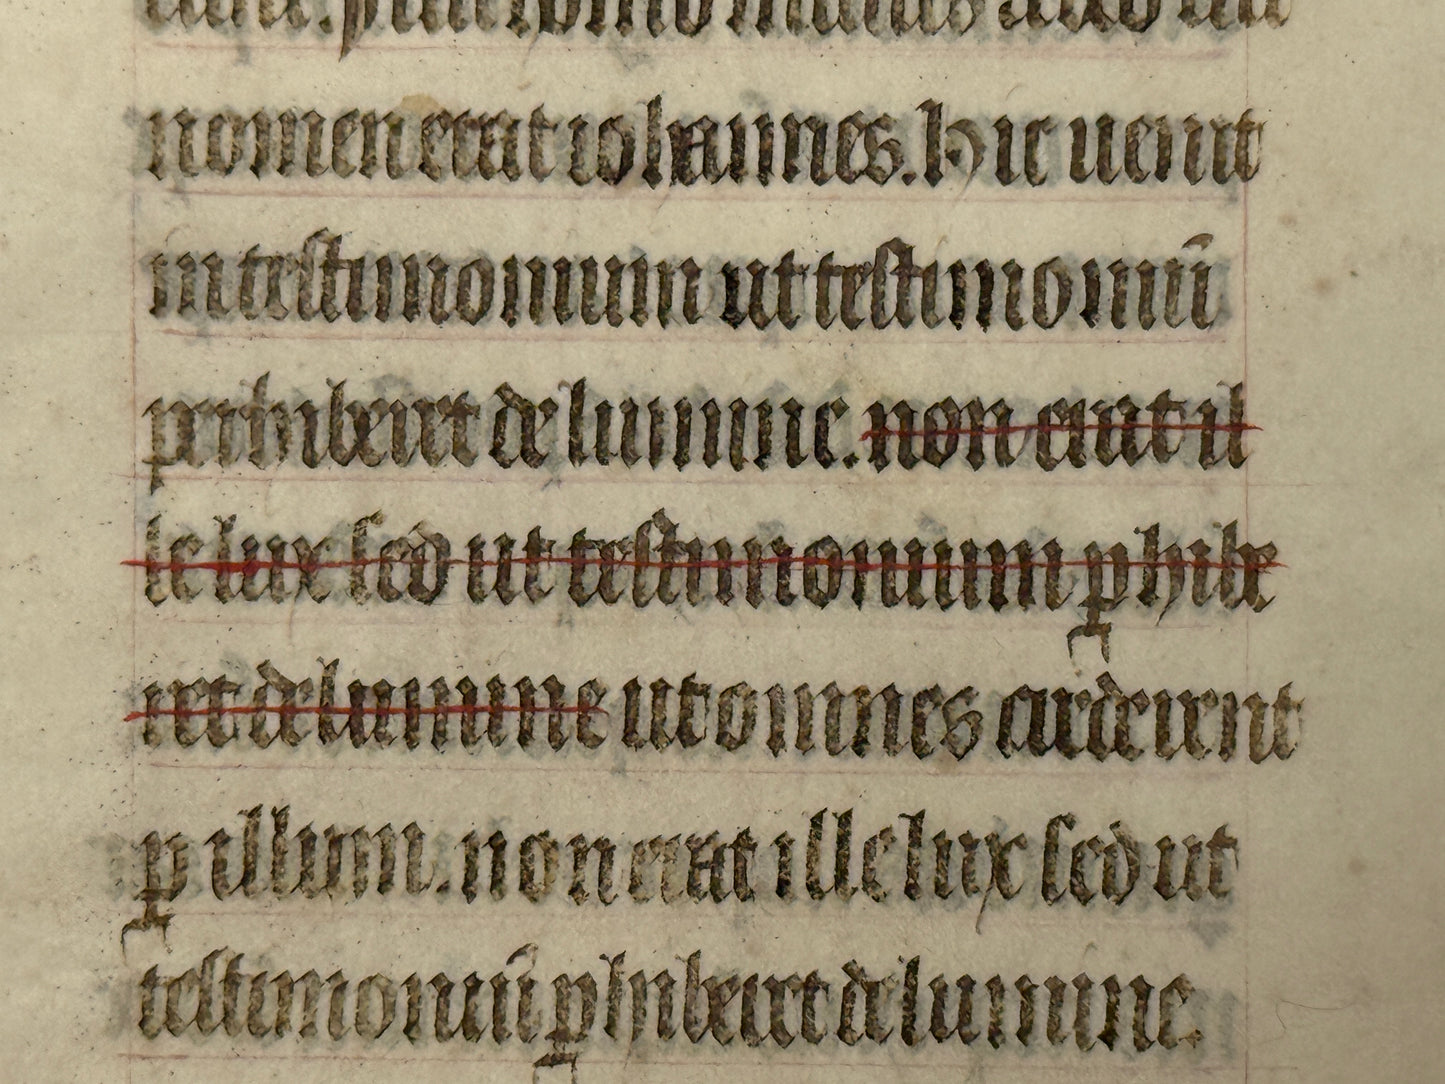 nomen erat iohannes. Hic uenit
in testimonium ut testimoniū
perhiberet de lumine. non erat il
le lux sed ut testimonium ꝑhibe
ret de lumine ut omnes crederent
ꝑ illum. non erat ille lux sed ut
testimoniū ꝑhiberet de lumine.